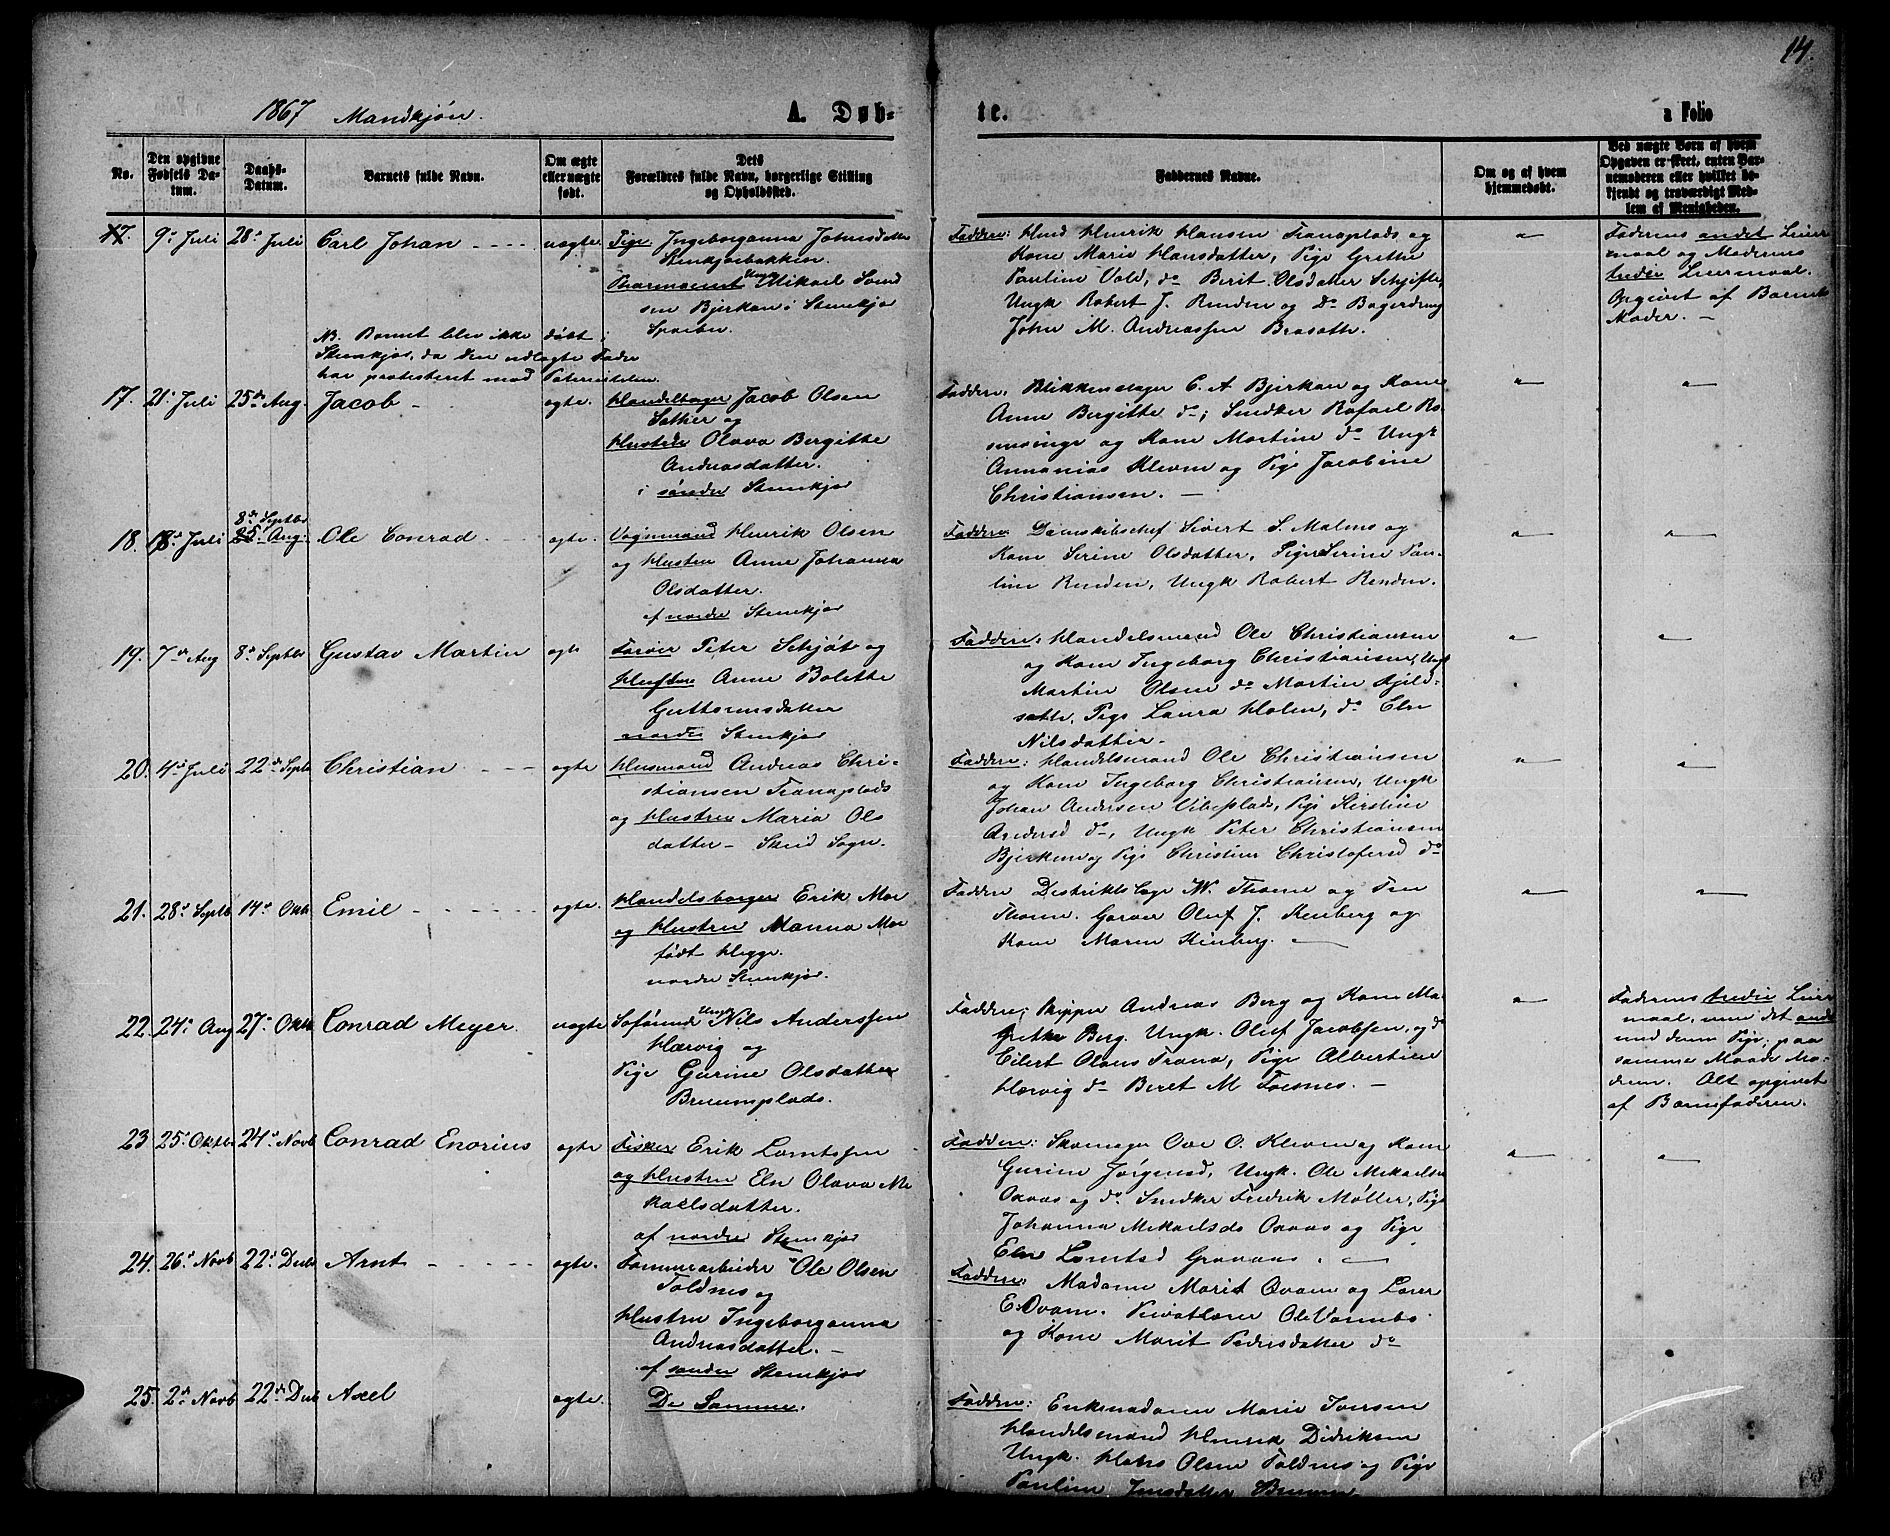 14.
1867 Mandkjøn.
A. Døb-
te.
a Folio
No.
Den opgivne
Fødsels Da-
tum.
Daabs-
Datum.
Barnets fulde Navn.
Om ægte
eller uægte
født.
Dets
Forældres fulde Navn, borgerlige Stilling
og Opholdssted.
Faddernes Navne.
Om og af hvem
hjemmedøbt.
Ved uægte Børn af hvem
Opgaven er skeet, enten Bar-
nemoderen eller hvilket be-
kjendt og troværdigt Med-
lem af Menigheden.
17. 9de Juli 28de Juli Carl Johan uægte
Pige Ingeborganna Johnsdatter
Stenkjærbakken.
Barnemand Ungk Mikael Svend
sen Bjerkan i Stenkjær
Sparbu.
NB. Barnet blev ikke døbt i
Stenkjær, da den udlagte Fader
har protesteret mod Paterniteten.
Faddere: Hmd Henrik Hansen Tranaplads og
Kone Marie Hansdatter, Pige Grethe
Pauline Vold, do Berit Olsdatter Schjefte,
Ungk Robert J. Renden og Do Bagerdreng
John M. Andreassen Brasøth.
Faderens andet Leier
maal og Moderens
tredie Leiermaal.
Opgivet af Barnets
Moder. —
17. 21de Juli 25de Aug. Jacob ægte.
Handelsborger Jacob Olsen
Sather og
Hustru Olava Bergitte
Andreasdatter.
i søndre Stenkjær
Faddere: Blikkenslager C. A. Bjerkan og Kone
Anne Bergitte do; Snedker Rafael Ro
sensvinge og Kone Martine do Ungk
Annanias Klevm og Pige Jacobine
Christiansen. —
8de Septbr
18. 18de Juli 25de Aug. Ole Conrad ægte.
Vognmand Henrik Olsen
og Hustru Anne Johanna
Olsdatter.
af nordre Stenkjær
Faddere: Dampskibschef Sivert S. Malmo og
Kone Serine Olsdatter, Pige Serine Pau-
line Renden, Ungk Robert Renden.
19. 7de Aug 8de Septbr Gustav Martin ægte
Farver Peter Schjøt og
Hustru Anne Bolette
Guttormsdatter
nordre Stenkjær
Faddere: Handelsmand Ole Christiansen
og Kone Ingeborg Christiansen, Ungk
Martin Olsen do Martin Kjeld-
sæth, Pige Laura Holen, do Elen
Nilsdatter.
20. 4de Juli 22de Septb Christian ægte
Husmand Andreas Chri-
stiansen Tranaplads
og Hustru Maria Ols
datter — Skeid Sogn.
Faddere: Handelsmand Ole Christiansen
og Kone Ingeborg Christiansen, Ungk
Johan Andersen Vibeplads, Pige Kirstine
Andersd do, Ungk Peter Christiansen
Bjerkem og Pige Christine Christofersd do
21. 28de Septb 14de Okt Emil ægte.
Handelsborger Erik Moe
og Hustru Manna Moe
født Hegge.
nordre Stenkjær.
Faddere Distriktslæge W. Thome og Fru
Thome. Garver Oluf J. Kenberg og
Kone Maren Kinberg.
22. 24de Aug 27de Okt Conrad Meyer uægte
Søfarend Ungk Nils Anderssen
Hærvig og
Pige Gurine Olsdatter
Bruumplads.
Faddere; Skipper Andreas Berg og Kone Ma
Grethe Berg. Ungk. Oluf Jacobsen, og do
Eilert Olaus Trana, Pige Albertine
Hærvig do Beret M Fosnes. —
Faderens tredie Leier
maal, men det andet
med denne Pige; paa
samme Maade Mo-
deren. Alt opgivet
af Barnefaderen.
23 25de Oktbr 24de Novb Conrad Enorius ægte
Fisker Erik Lorntssen
og Hustru Eln Olava Mi
kaelsdatter.
af nordre Stenkjær
Faddere: Skomager Ove O. Klevm og Kone
Gurine Jørgensd, Ungk. Ole Mikaelsen
Oxaas og do Snedker Fredrik Møller, Pige
Johanna Mikaelsdr Oxaas og Pige
Elen Lorntsd Gravaas. —
24. 26de Novb 22de Decbr Arnt ægte.
Tømmerarbeider Ole Olsen
Foldnes og
Hustru Ingeborganna
Andreasdatter. —
af søndre Stenkjær
Faddere: Madame Marit Qvam og Lærer
E. Qvam. Privatlærer Ole Vannebo
og Kone Marit Pedersdatter do
25. 2de Novb 22de Decb Axel ægte.
De Samme.
Faddere: Enkemadame Marie Iversen
Handelsmand Henrik Didriksen
Ungk. Hans Olsen Foldnes og Pige
Pauline Jensdatter Bruum